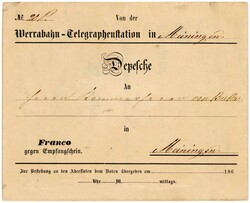 № Von der
Werrabahn-Telegraphenstation in Meiningen.
Depesche
An
Herrn Kammerherrn von
in
Franco
gegen Empfangschein. Meiningen
Zur Bestellung an den Adressaten dem Boten übergeben am 186
Uhr M. mittags.